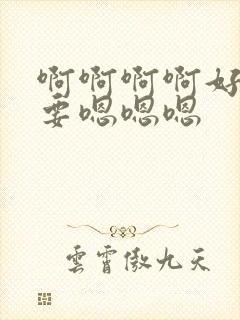 啊啊啊啊好
要嗯嗯嗯
雲霄傲九天